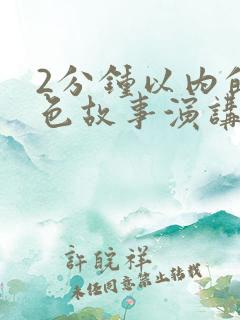 2分鍾以内
色故事演講
許皖祥
未经同意禁止转载